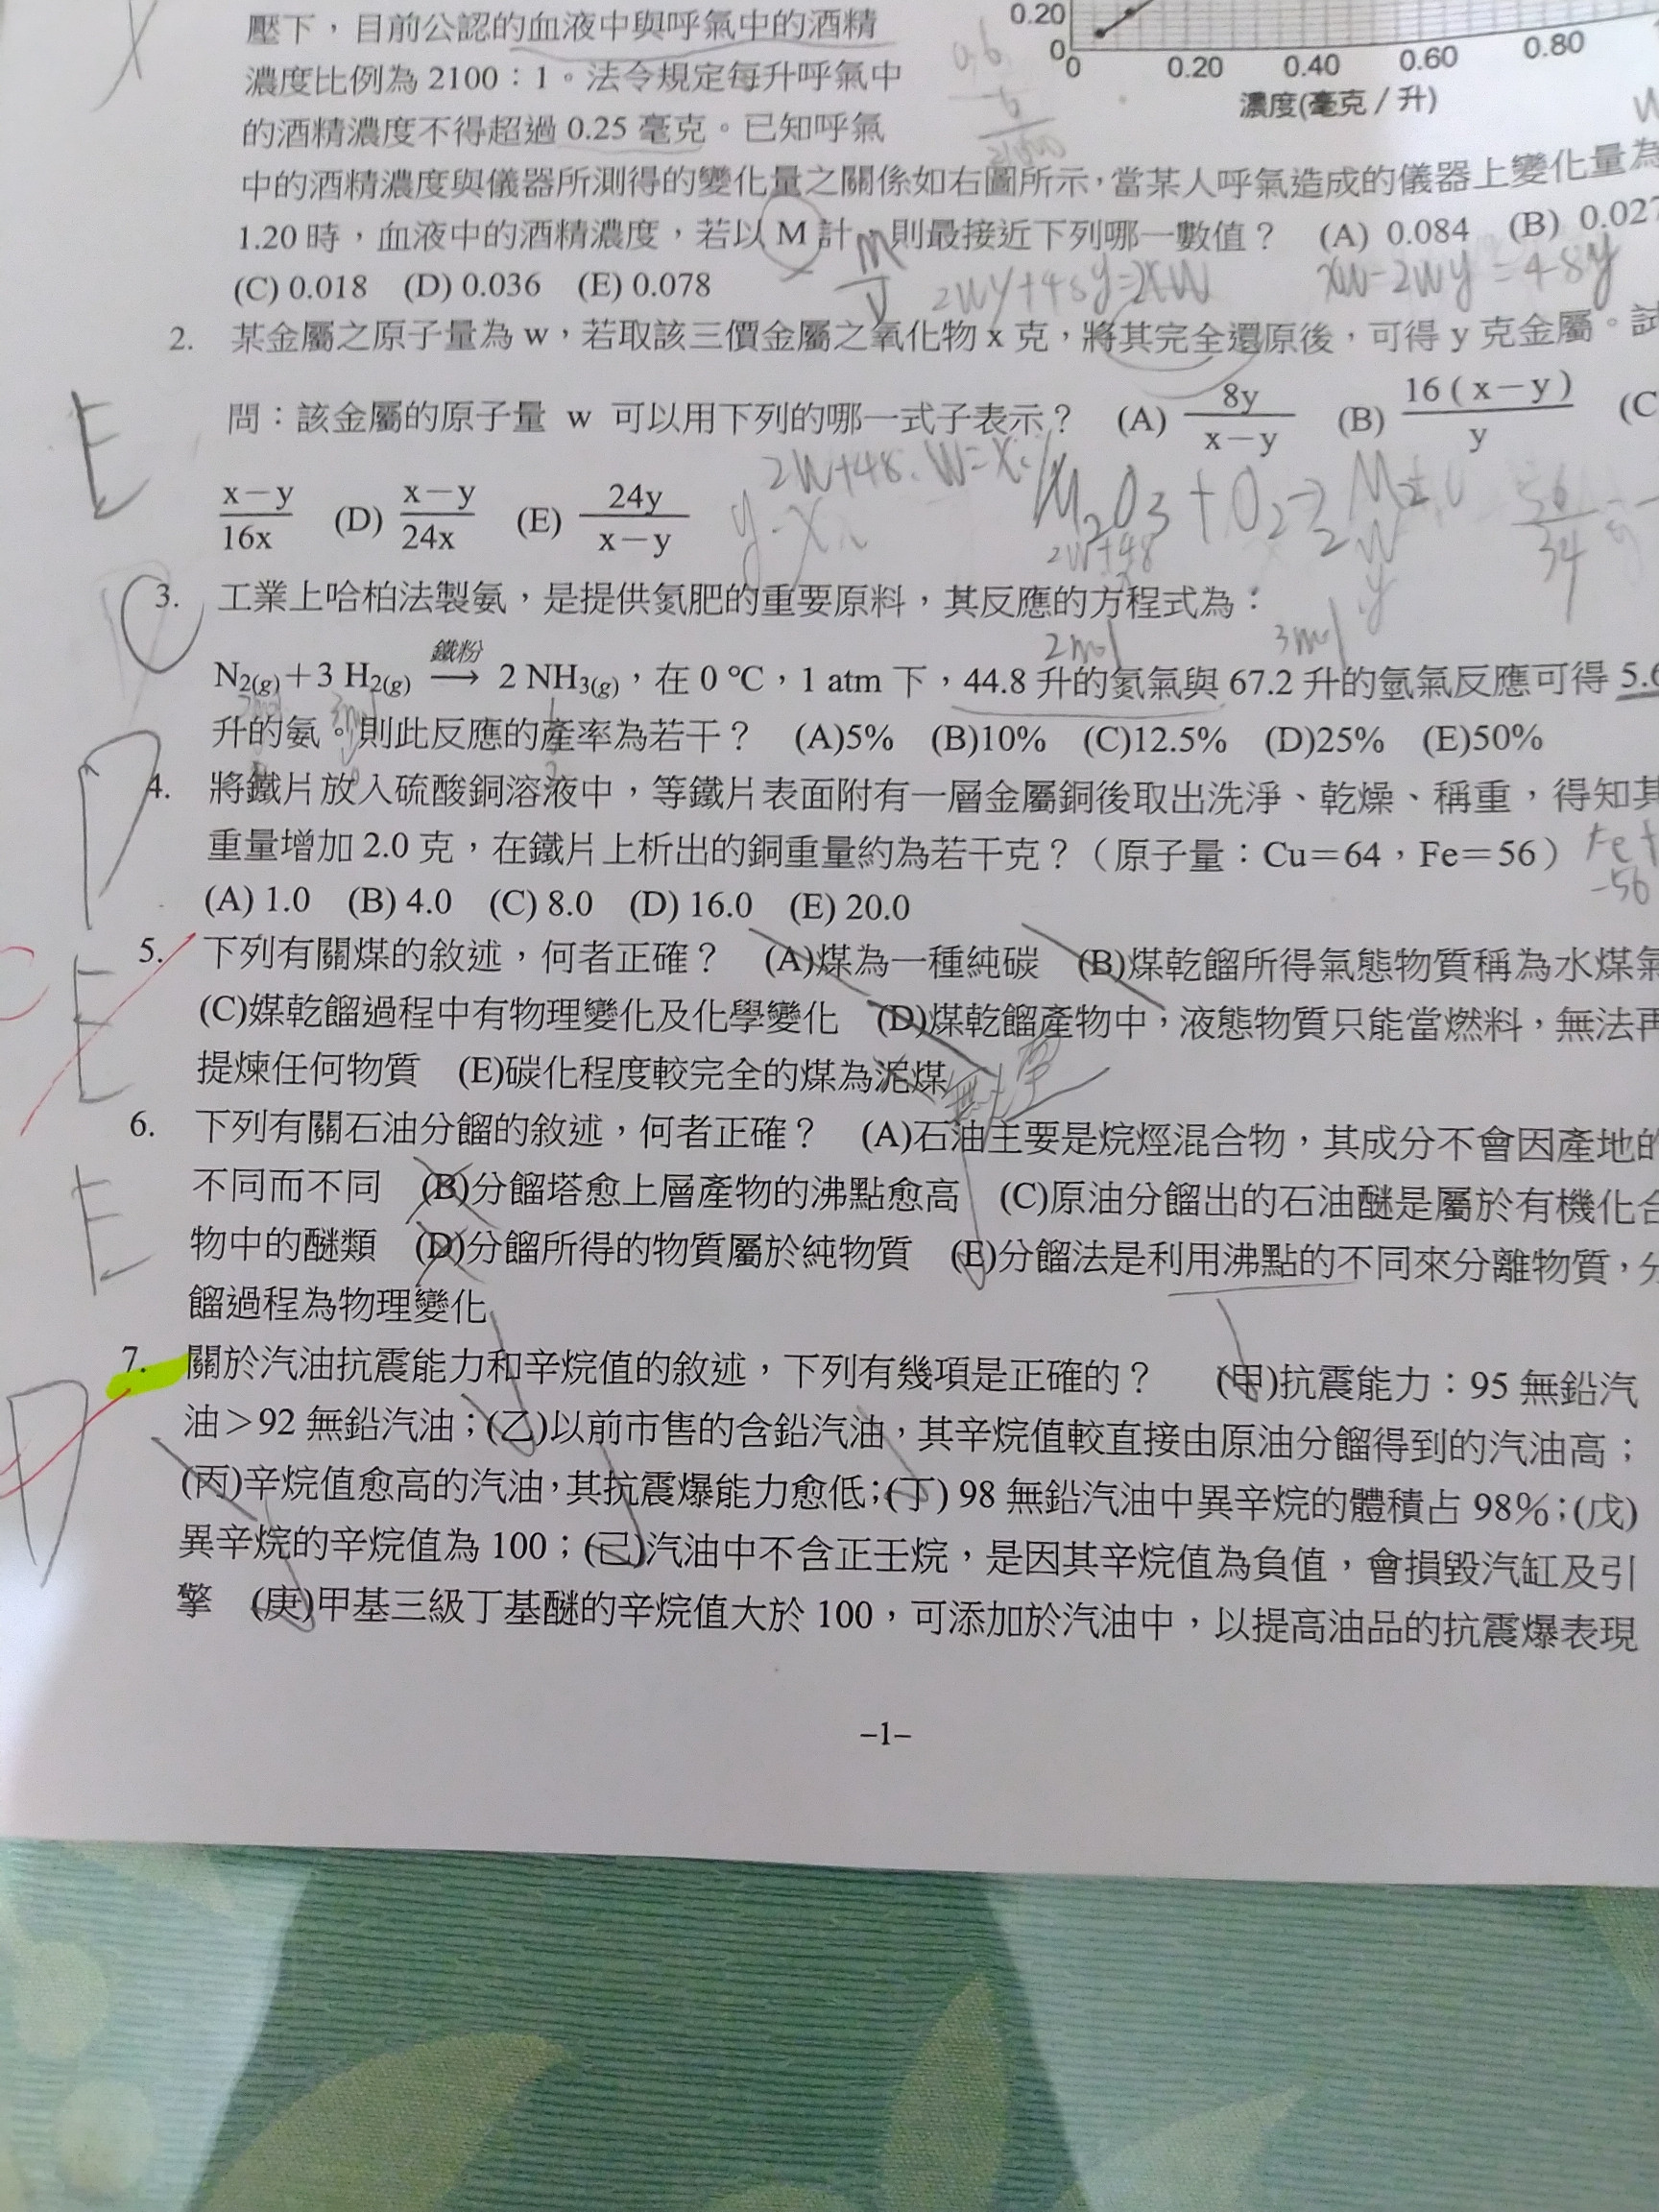 壓下，目前公認的血液中與呼氣中的酒精
濃度比例為 2100：1。法令規定每升呼氣中
的酒精濃度不得超過 0.25 毫克。已知呼氣
0.20
0
0 0.20 0.40 0.60 0.80
濃度(毫克 / 升)
中的酒精濃度與儀器所測得的變化量之關係如右圖所示，當某人呼氣造成的儀器上變化量為
1.20 時，血液中的酒精濃度，若以 M 計，則最接近下列哪一數值？ (A) 0.084 (B) 0.027
(C) 0.018 (D) 0.036 (E) 0.078
m/V 2wy+48y=2xw xw-2wy=48y
2. 某金屬之原子量為 w，若取該三價金屬之氧化物 x 克，將其完全還原後，可得 y 克金屬。試
E
問：該金屬的原子量 w 可以用下列的哪一式子表示？ (A) 8y/x−y (B) 16（x−y）/y (C
x−y/16x (D) x−y/24x (E) 24y/x−y
2w+48
3. 工業上哈柏法製氨，是提供氮肥的重要原料，其反應的方程式為：
2mol 3mol
N2(g)＋3 H2(g) 鐵粉⟶ 2 NH3(g)，在 0 ℃，1 atm 下，44.8 升的氮氣與 67.2 升的氫氣反應可得 5.6
升的氨。則此反應的產率為若干？ (A)5% (B)10% (C)12.5% (D)25% (E)50%
D
4. 將鐵片放入硫酸銅溶液中，等鐵片表面附有一層金屬銅後取出洗淨、乾燥、稱重，得知其
重量增加 2.0 克，在鐵片上析出的銅重量約為若干克？（原子量：Cu＝64，Fe＝56）
Fe+
-56
(A) 1.0 (B) 4.0 (C) 8.0 (D) 16.0 (E) 20.0
C E
5. 下列有關煤的敘述，何者正確？ (A)煤為一種純碳 (B)煤乾餾所得氣態物質稱為水煤氣
(C)媒乾餾過程中有物理變化及化學變化 (D)煤乾餾產物中，液態物質只能當燃料，無法再
提煉任何物質 (E)碳化程度較完全的煤為泥煤
無煙
6. 下列有關石油分餾的敘述，何者正確？ (A)石油主要是烷烴混合物，其成分不會因產地的
E
不同而不同 (B)分餾塔愈上層產物的沸點愈高 (C)原油分餾出的石油醚是屬於有機化合
物中的醚類 (D)分餾所得的物質屬於純物質 (E)分餾法是利用沸點的不同來分離物質，分
餾過程為物理變化
D
7. 關於汽油抗震能力和辛烷值的敘述，下列有幾項是正確的？ (甲)抗震能力：95 無鉛汽
油＞92 無鉛汽油；(乙)以前市售的含鉛汽油，其辛烷值較直接由原油分餾得到的汽油高；
(丙)辛烷值愈高的汽油，其抗震爆能力愈低；(丁) 98 無鉛汽油中異辛烷的體積占 98%；(戊)
異辛烷的辛烷值為 100；(己)汽油中不含正壬烷，是因其辛烷值為負值，會損毀汽缸及引
擎 (庚)甲基三級丁基醚的辛烷值大於 100，可添加於汽油中，以提高油品的抗震爆表現
−1−